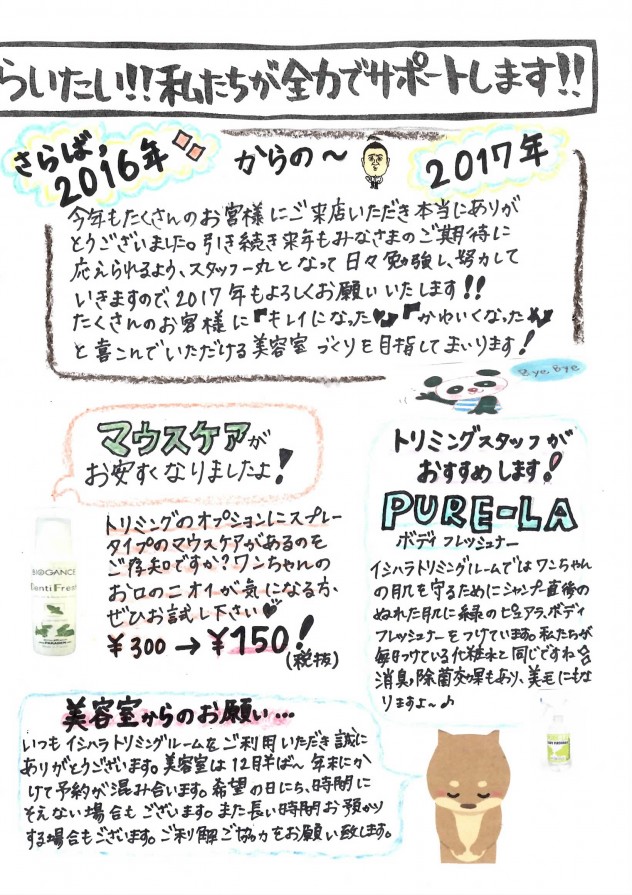 らいたい!!私たちが全力でサポートします!!
さらば,
2016年
からの〜
2017年
今年もたくさんのお客様にご来店いただき本当にありが
とうございました。引き続き来年もみなさまのご期待に
応えられるよう、スタッフ一丸となって日々勉強し、努力して
いきますので、2017年もよろしくお願いいたします!!
たくさんのお客様に『キレイになった♥』『かわいくなった★』
と喜こんでいただける美容室づくりを目指してまいります!
Bye Bye
マウスケアが
お安すくなりましたよ!
トリミングのオプションにスプレー
タイプのマウスケアがあるのを
ご存知ですか?ワンちゃんの
お口のニオイが気になる方、
ぜひお試し下さい♥
¥300→¥150!
(税抜)
BIOGANCE
Denti Fresh
トリミングスタッフが
おすすめします!
PURE-LA
ボディフレッシュナー
イシハラトリミングルームではワンちゃん
の肌を守るためにシャンプー直後の
ぬれた肌に緑のピュアラ、ボディ
フレッシュナーをつけています。私たちが
毎日つけている化粧水と同じですね
消臭、除菌効果もあり、美毛にもな
りますよ〜♪
美容室からのお願い…
いつもイシハラトリミングルームをご利用いただき誠に
ありがとうございます。美容室は12月半ば〜年末にか
けて予約が混み合います。希望の日にち、時間に
そえない場合もございます。また長い時間お預かり
する場合もございます。ご利解ご協力をお願い致します。